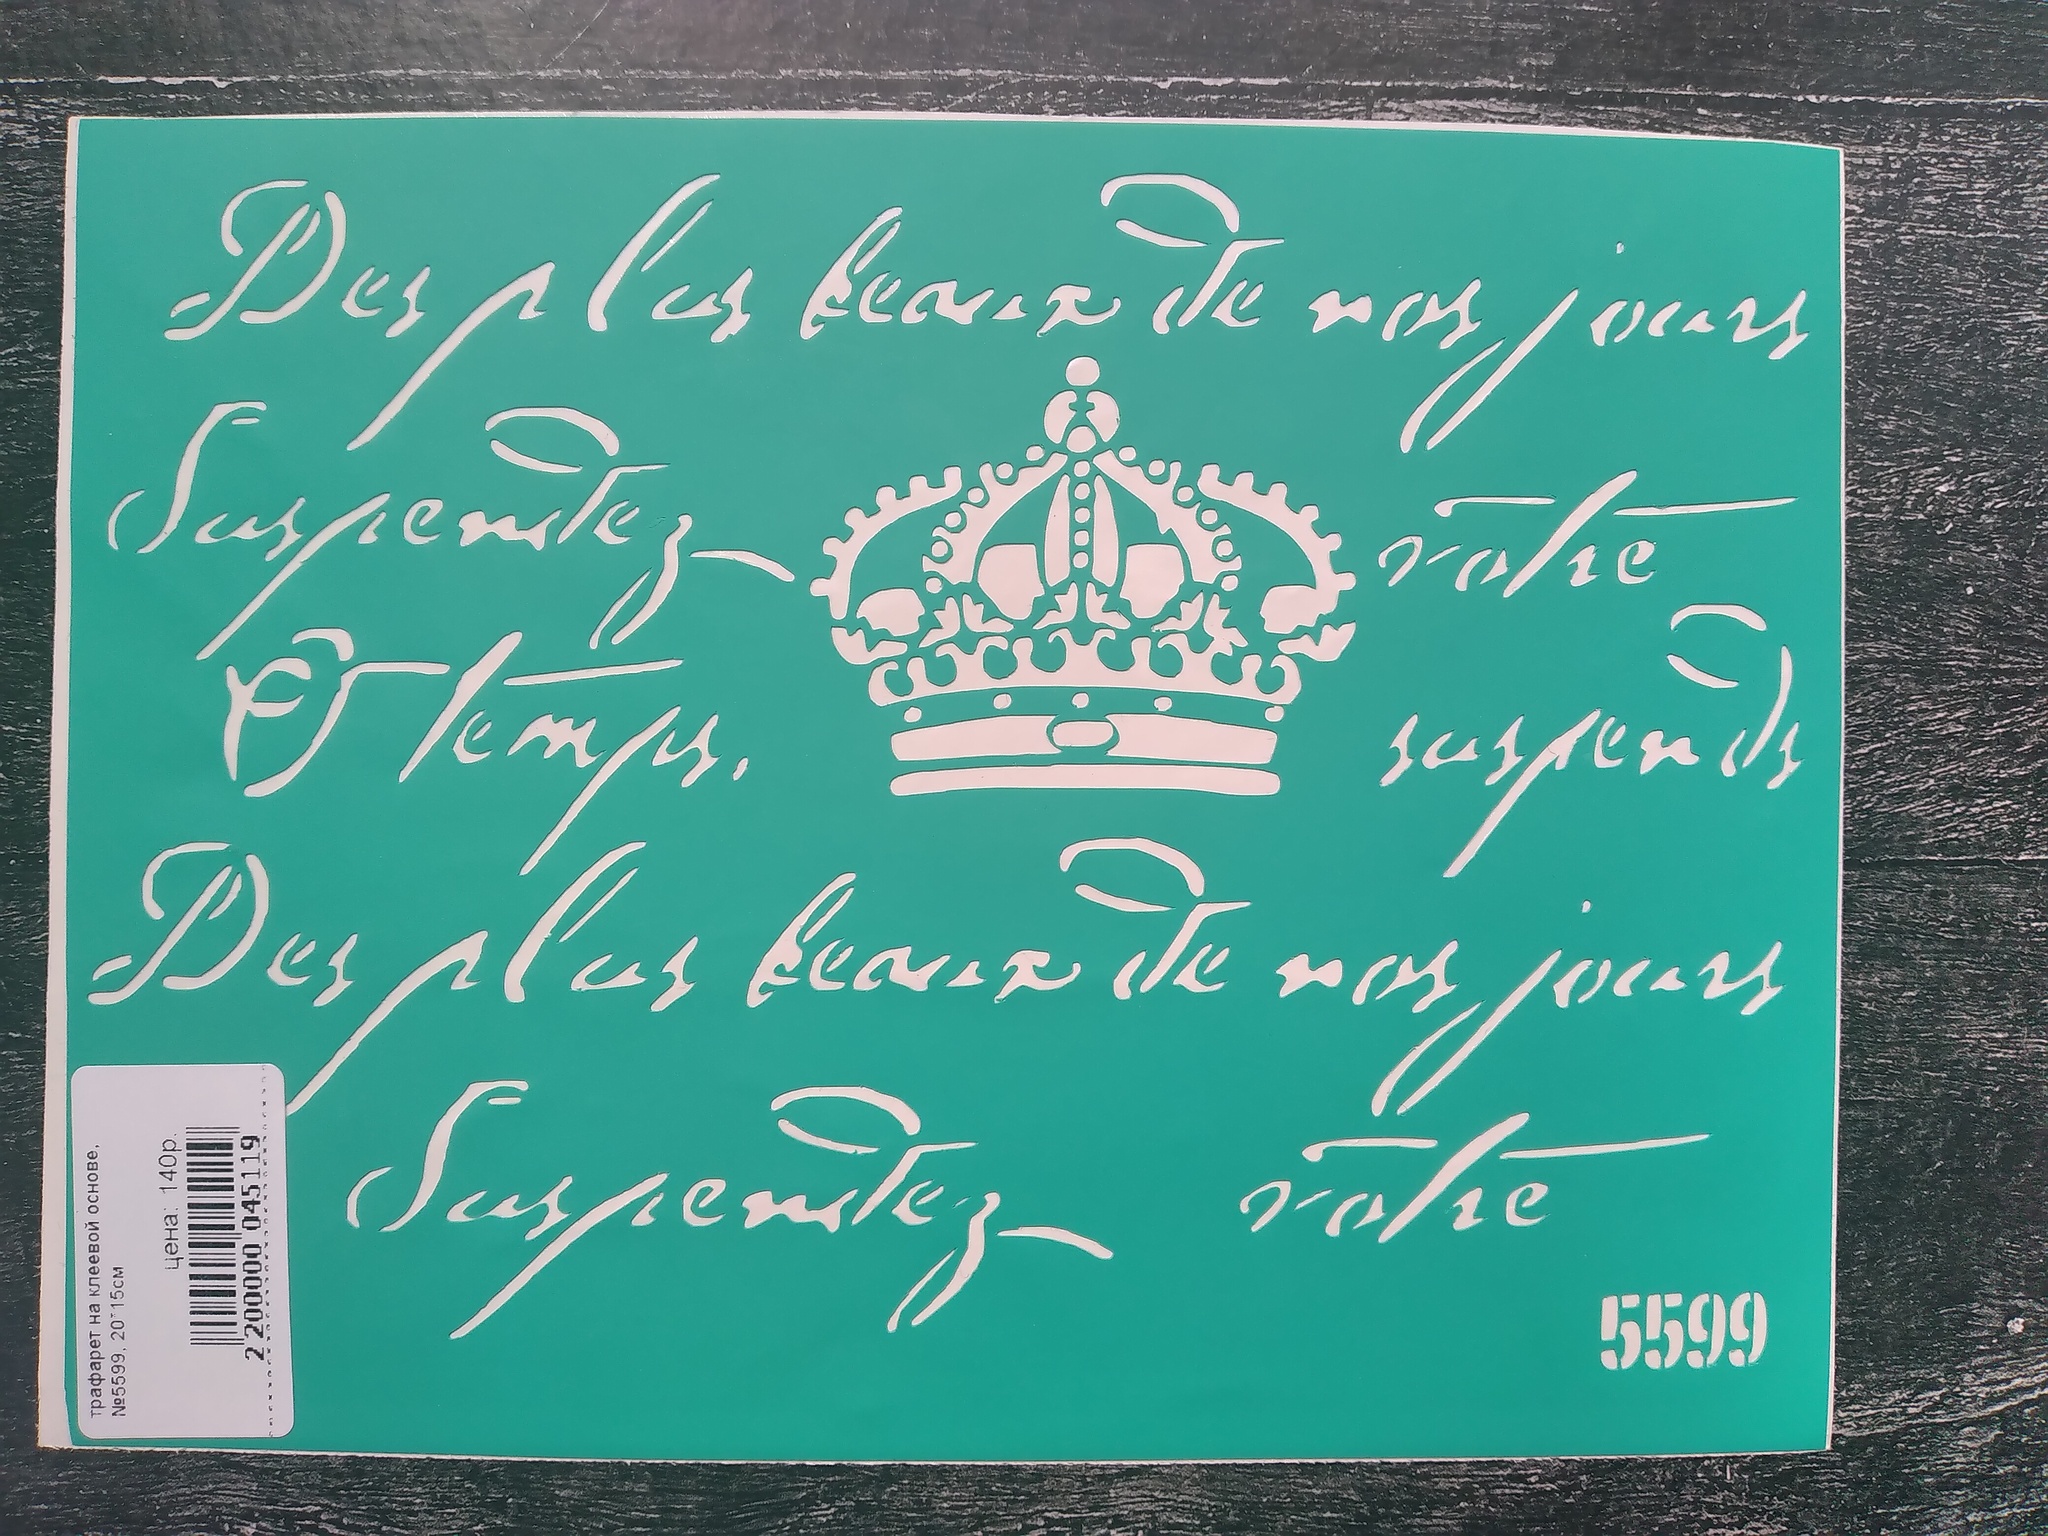 Des plus beaux de nos jours
Suspendez votre
Ô temps, suspends
Des plus beaux de nos jours
Suspendez votre
5599
трафарет на клеевой основе,
№5599, 20*15см
цена: 140р.
2 200000 045119